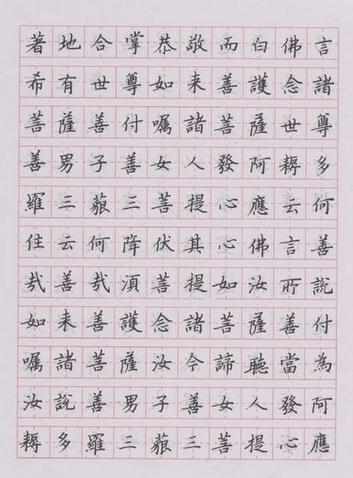 著地合掌恭敬而白佛言
希有世尊如来善護念諸
菩薩善付囑諸菩薩世尊
善男子善女人發阿耨多
羅三藐三菩提心應云何
住云何降伏其心佛言善
哉善哉須菩提如汝所說
如来善護念諸菩薩善付
囑諸菩薩汝今諦聽當為
汝說善男子善女人發阿
耨多羅三藐三菩提心應